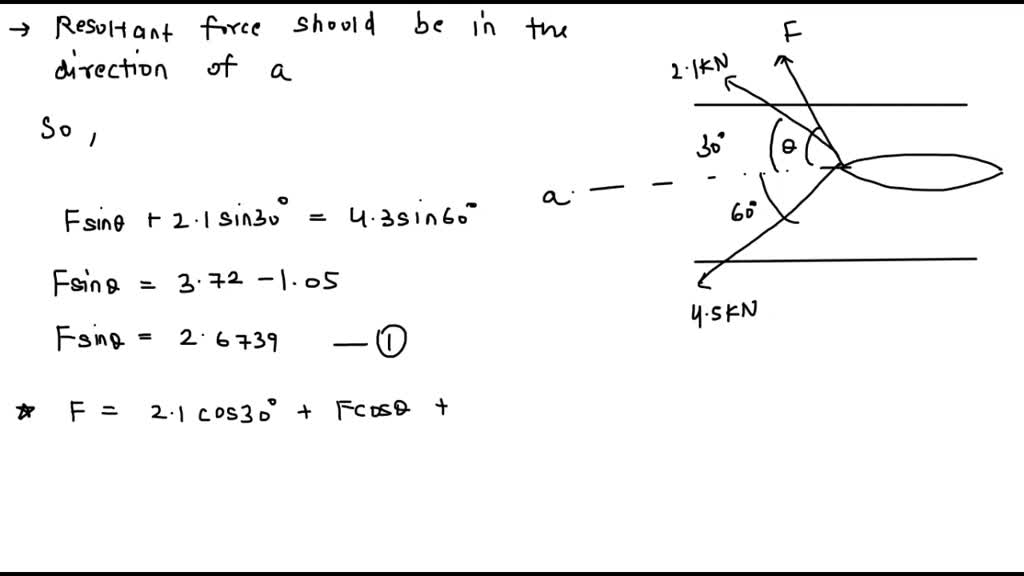 → Resultant force should be in the
direction of a
So,
Fsinθ + 2.1 sin30° = 4.3sin60°
Fsinθ = 3.72 - 1.05
Fsinθ = 2.6739 — ①
* F = 2.1 cos30° + Fcosθ +
F
2.1KN
30°
θ
a
60°
4.5KN